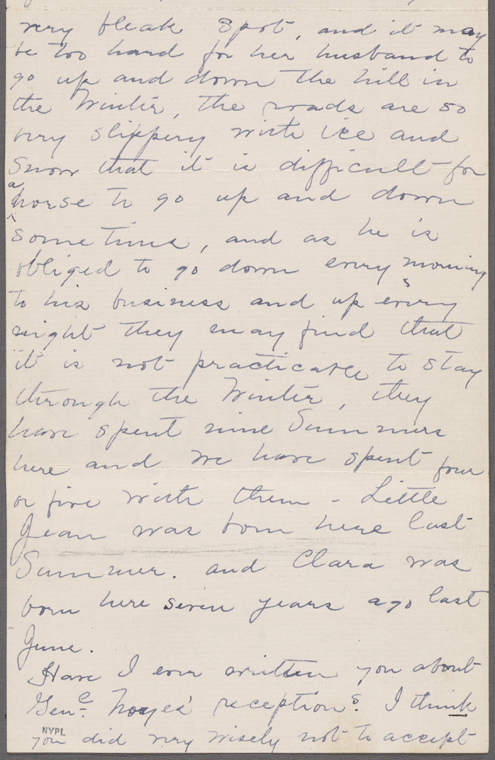 very bleak spot, and it may
be too hard for her husband to
go up and down the hill in
the Winter, the roads are so
very slippery with ice and
Snow that it is difficult for
a horse to go up and down
sometimes, and as he is
obliged to go down every morning
to his business and up every
night they may find that
it is not practicable to stay
through the Winter, they
have spent nine Summers
here and we have spent four
or five with them - Little
Jean was born here last
Summer. and Clara was
born here seven years ago last
June.
Have I ever written you about
Genl. Noyes' receptions. I think
NYPL
you did very wisely not to accept